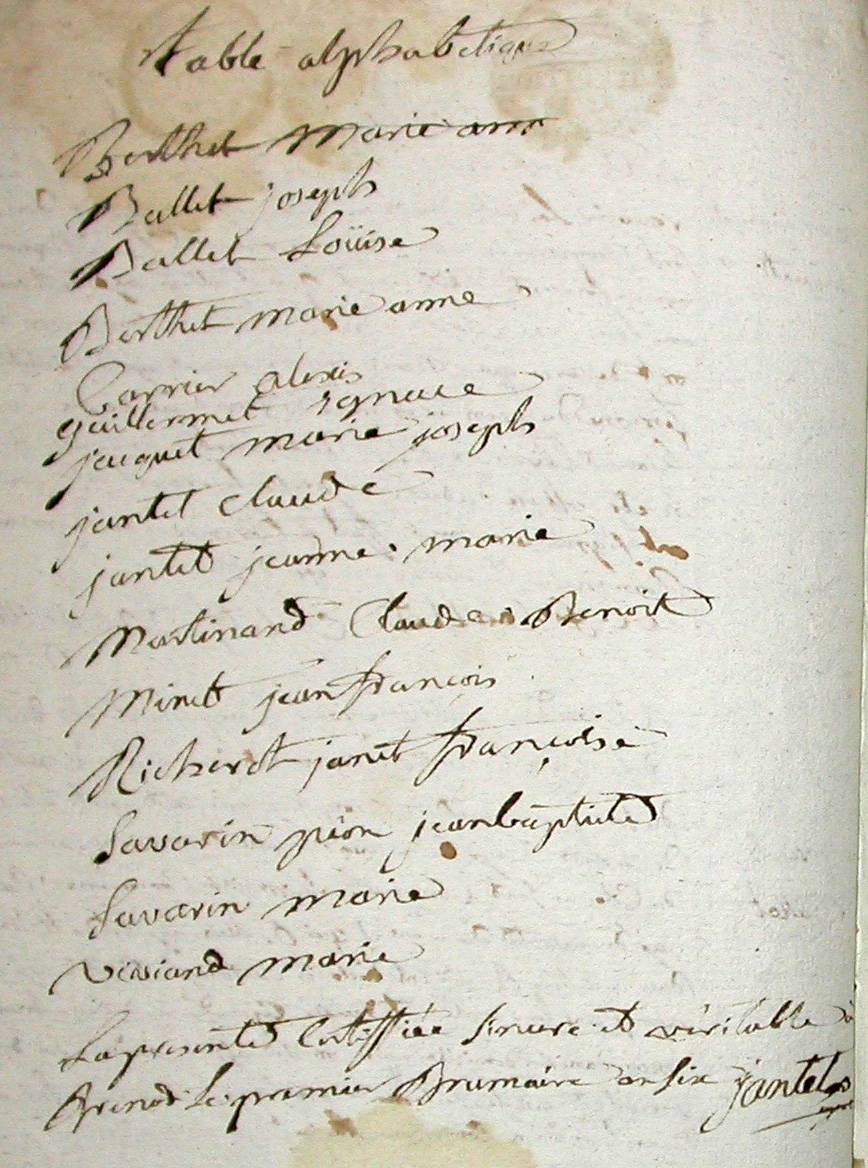 table alphabetique
Berthet Marie anne
Ballet joseph
Ballet Loüise
Berthet marie anne
Carrier alexis
guillermet ignace
jacquet marie joseph
jantet claude
jantet jeanne marie
Martinand Claude Benoit
Minet jean françois
Richerot janet françoise
Savarin pion jeanbaptiste
Savarin marie
viviand marie
La presente Certiffiée sincere et véritable à
Brenod le premier Brumaire an six jantet